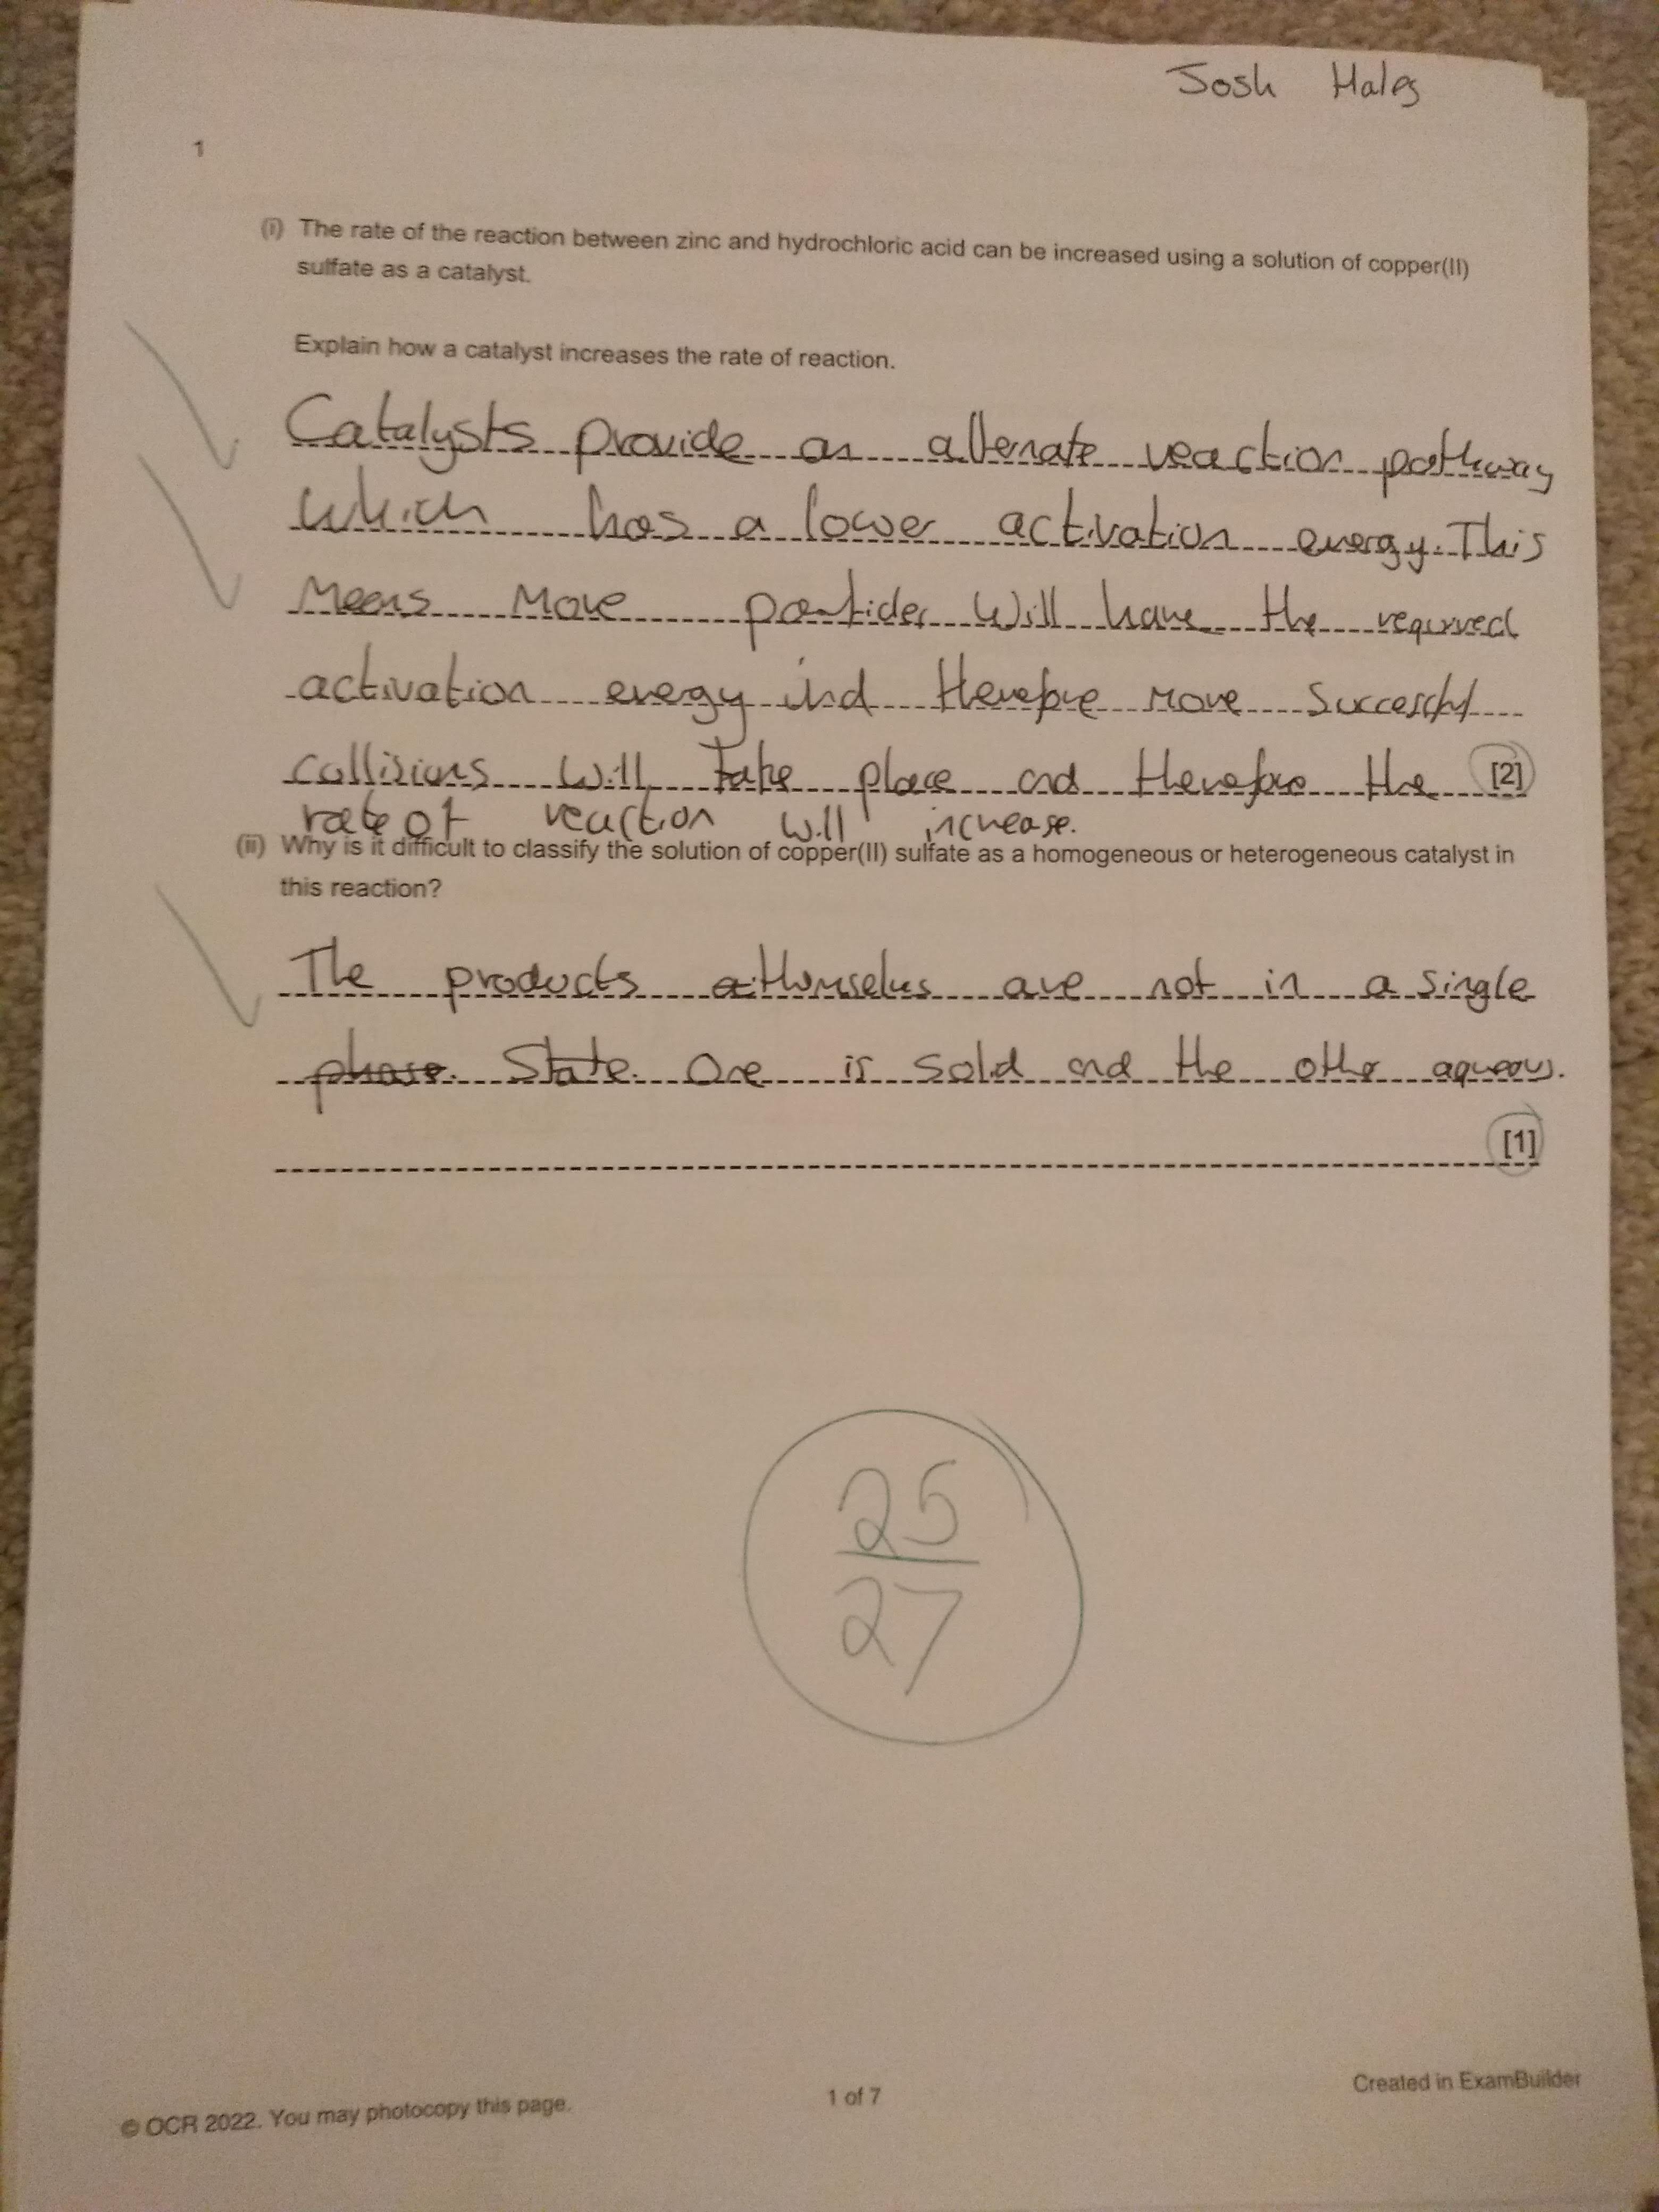 Josh Hales
1
(i) The rate of the reaction between zinc and hydrochloric acid can be increased using a solution of copper(II)
sulfate as a catalyst.
Explain how a catalyst increases the rate of reaction.
Catalysts provide an alternate reaction pathway
which has a lower activation energy. This
Means More particles will have the required
activation energy and therefore more successful
collisions will take place and therefore the [2]
rate of reaction will increase.
(ii) Why is it difficult to classify the solution of copper(II) sulfate as a homogeneous or heterogeneous catalyst in
this reaction?
The products themselves are not in a single
phase. State. One is solid and the other aqueous.
[1]
25
27
© OCR 2022. You may photocopy this page.
1 of 7
Created in ExamBuilder